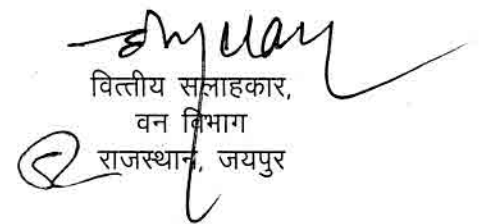 वित्तीय सलाहकार,
वन विभाग
राजस्थान, जयपुर